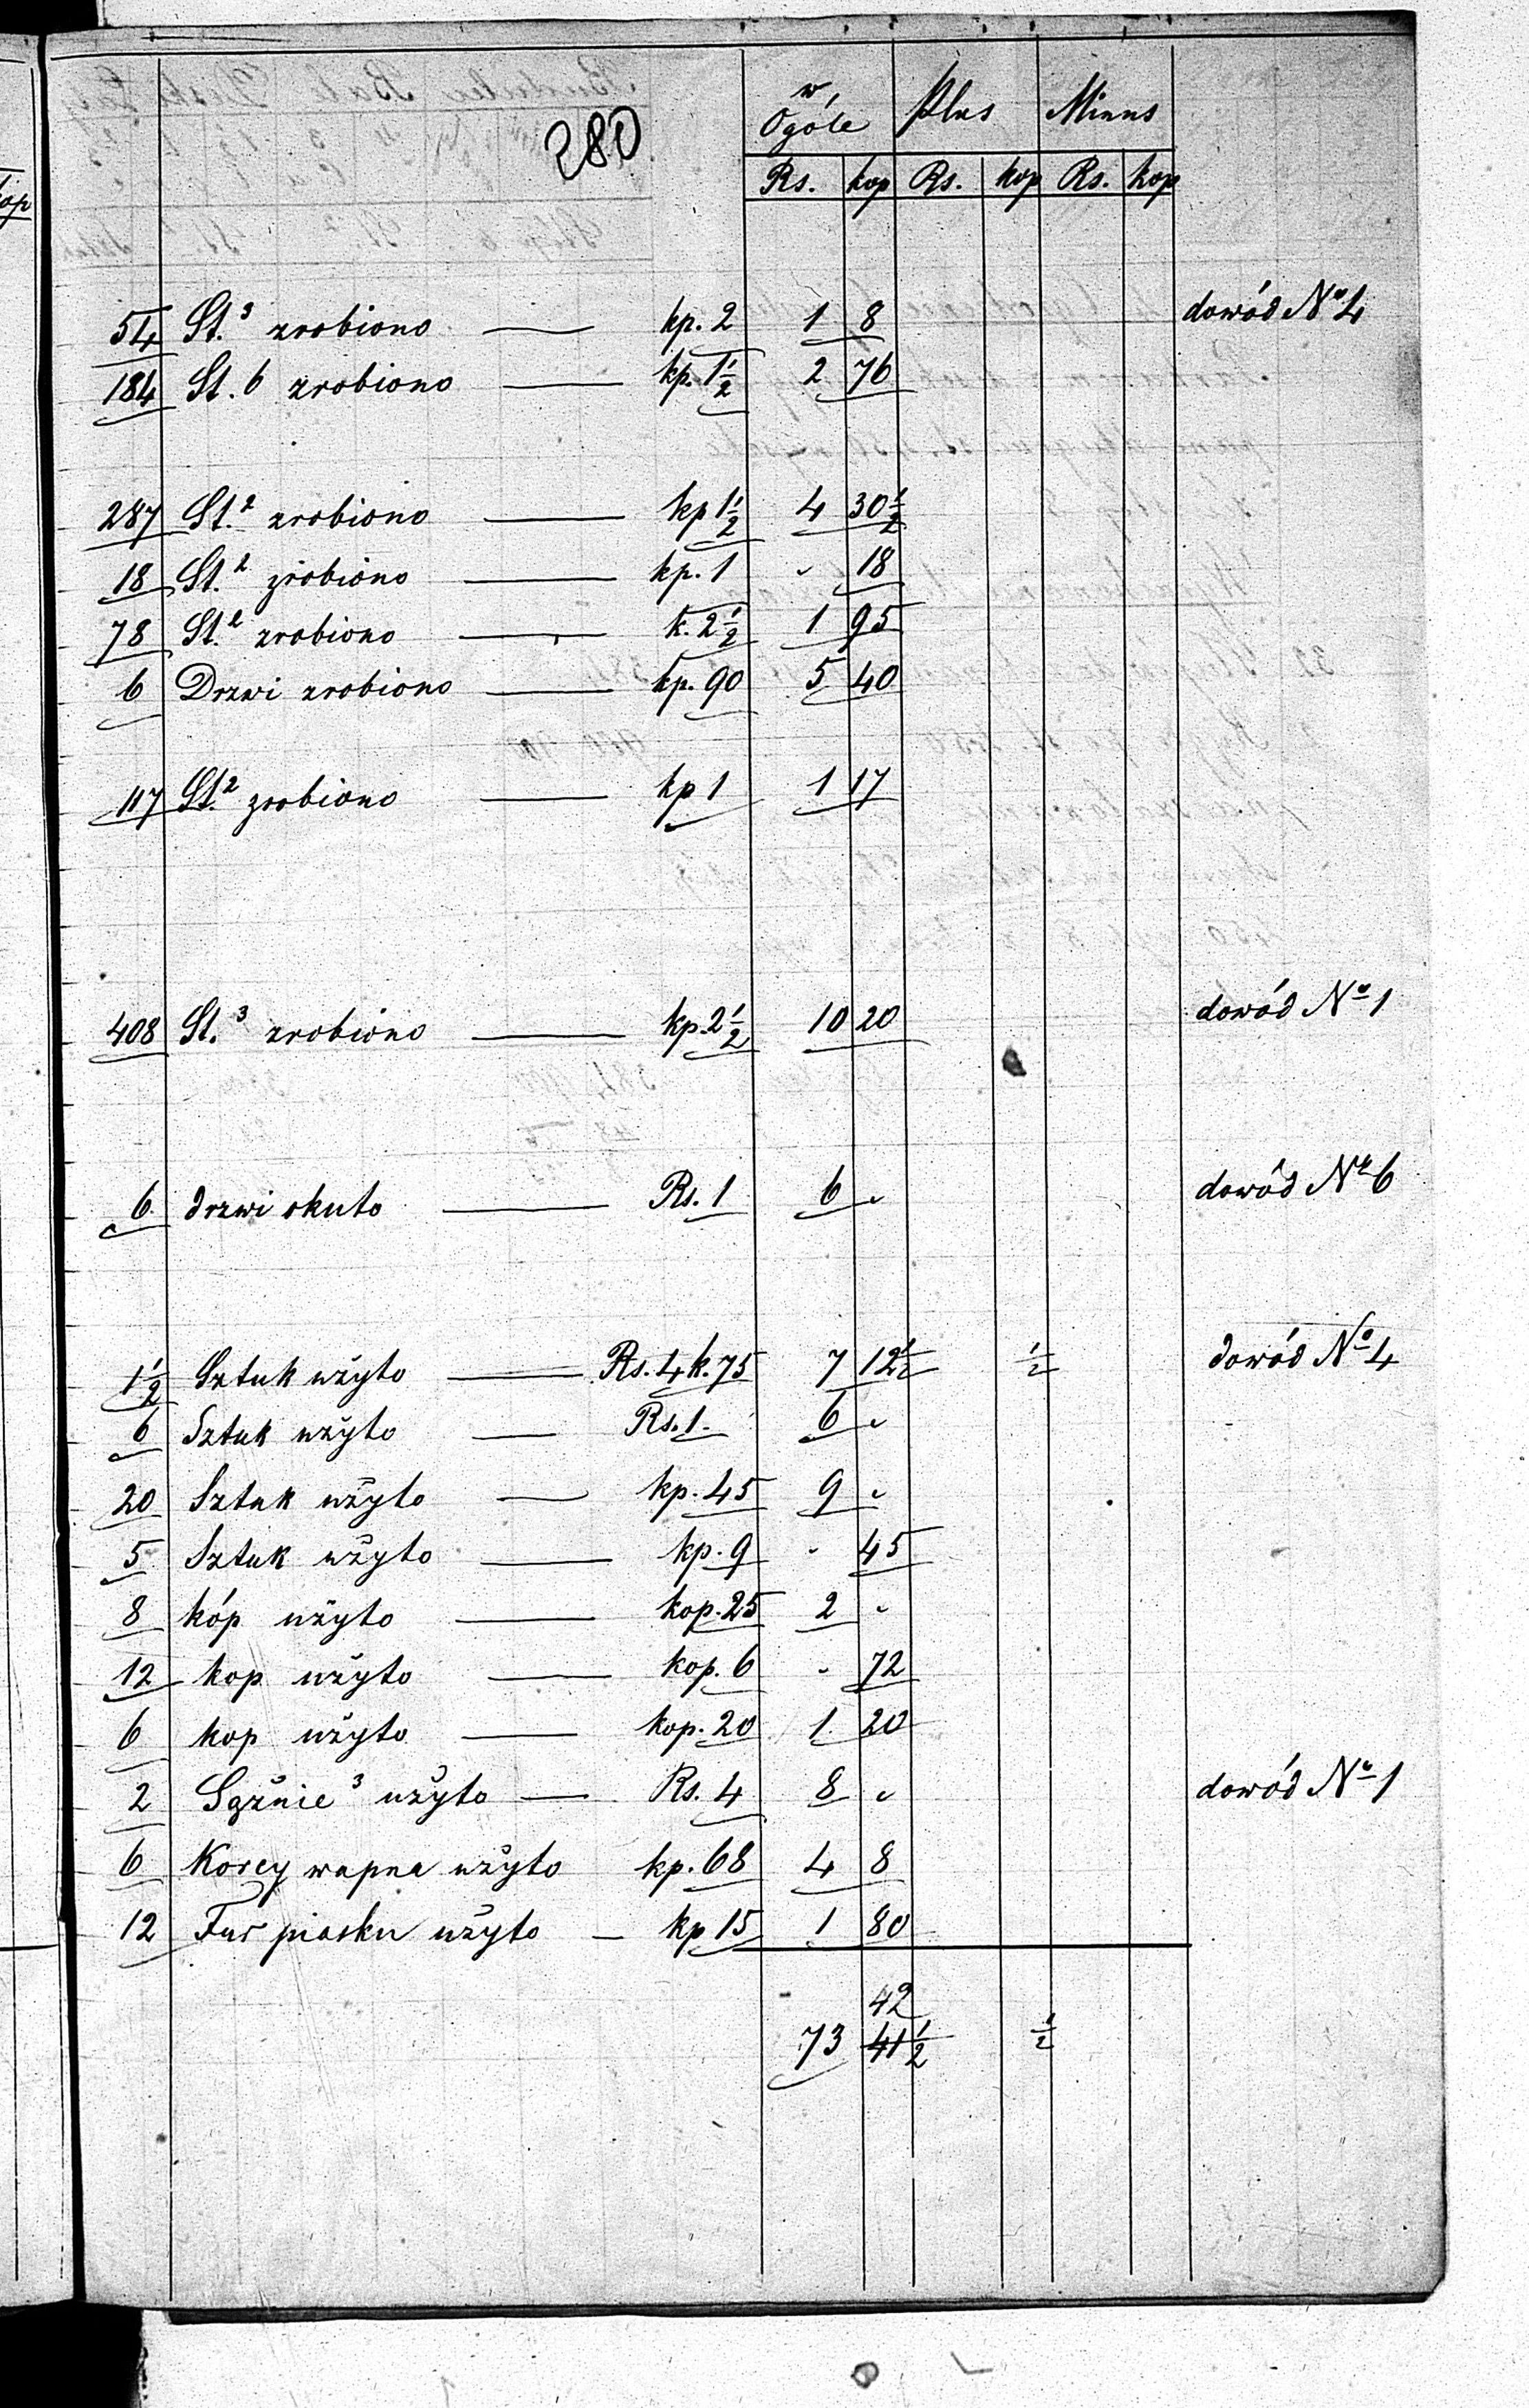 280
w Ogóle Plus Minus
Rs. kop Rs. kop Rs. kop
kop
54 St.³ zrobiono — kp. 2 1 8 dowód Nº 4
184 St. 6 zrobiono — kp. 1½ 2 76
287 St.² zrobiono — kp 1½ 4 30½
18 St.² zrobiono — kp. 1 " 18
78 St.² zrobiono — k. 2½ 1 95
6 Drzwi zrobiono — kp. 90 5 40
117 St.² zrobiono — kp 1 1 17
408 St.³ zrobiono — kp. 2½ 10 20 dowód Nº 1
6 drzwi okuto — Rs. 1 6 " dowód Nº 6
1½ Sztuk użyto — Rs. 4 k. 75 7 12½ ½ dowód Nº 4
6 Sztuk użyto — Rs. 1. 6 "
20 Sztuk użyto — kp. 45 9 "
5 Sztuk użyto — kp. 9 " 45
8 kóp użyto — kop. 25 2 "
12 kop użyto — kop. 6 " 72
6 kop użyto — kop. 20 1. 20
2 Sążnie³ użyto — Rs. 4 8 " dowód Nº 1
6 Korcy wapna użyto — kp. 68 4 8
12 Fur piasku użyto — kp 15 1 80
42
73 41½ ½